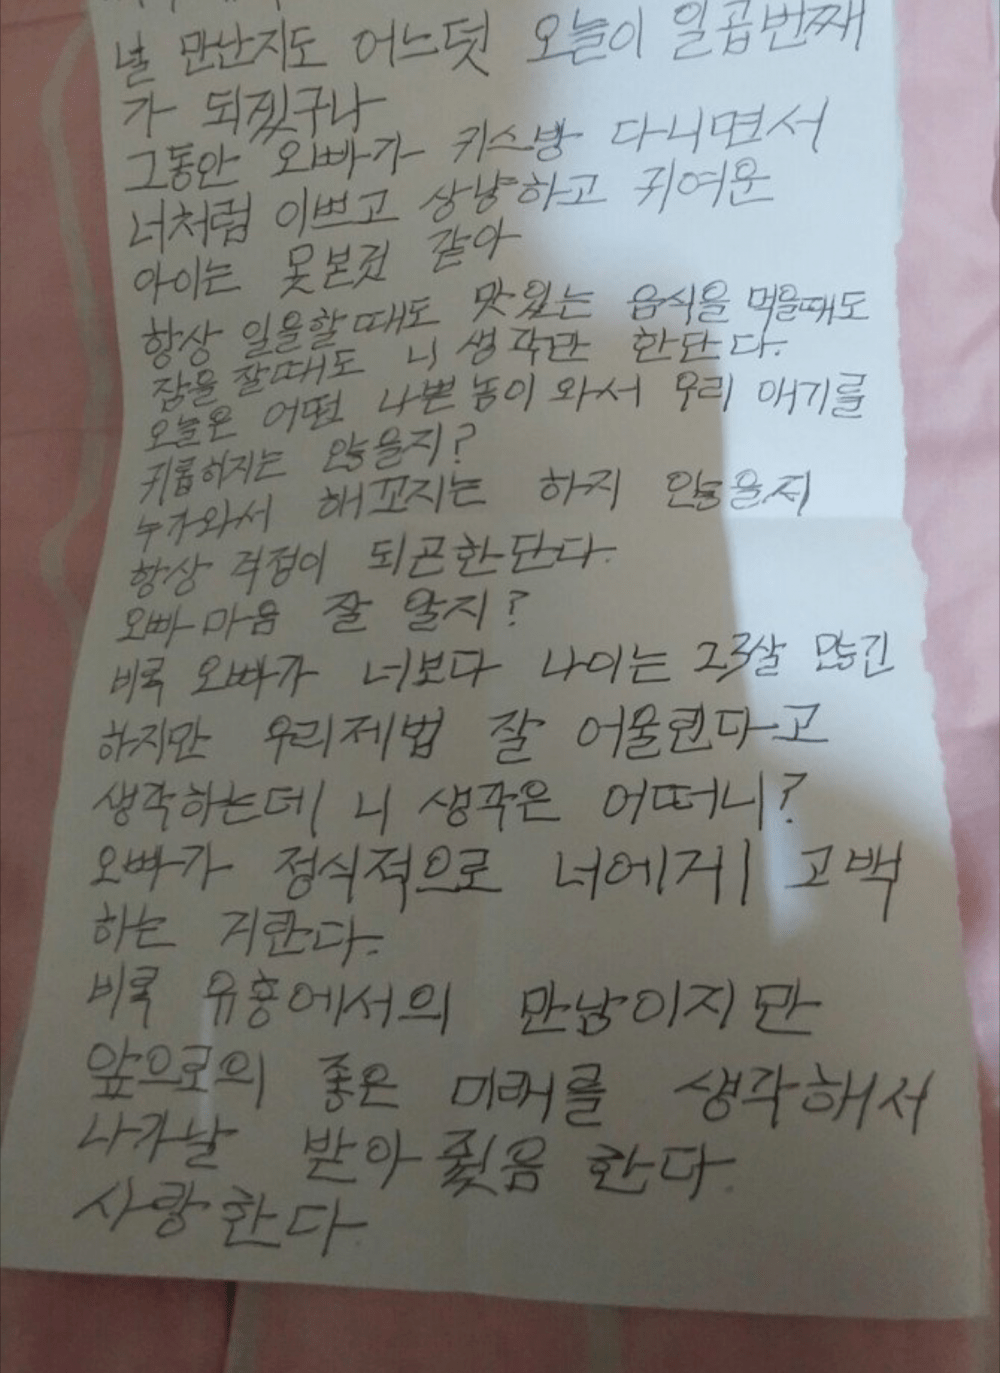 널 만난지도 어느덧 오늘이 일곱번째
가 되겠구나
그동안 오빠가 키스방 다니면서
너처럼 이쁘고 상냥하고 귀여운
아이는 못본것 같아
항상 일을할때도 맛있는 음식을 먹을때도
잠을 잘때도 니 생각만 한단다.
오늘은 어떤 나쁜놈이 와서 우리 애기를
귀롭히지는 않을지?
누가와서 해꼬지는 하지 않을지
항상 걱정이 되곤한단다.
오빠 마음 잘 알지?
비록 오빠가 너보다 나이는 23살 많긴
하지만 우리제법 잘 어울린다고
생각하는데 니 생각은 어떠니?
오빠가 정식적으로 너에게 고백
하는 거란다.
비록 유흥에서의 만남이지만
앞으로의 좋은 미래를 생각해서
나가날 받아 줮음 한다.
사랑한다.